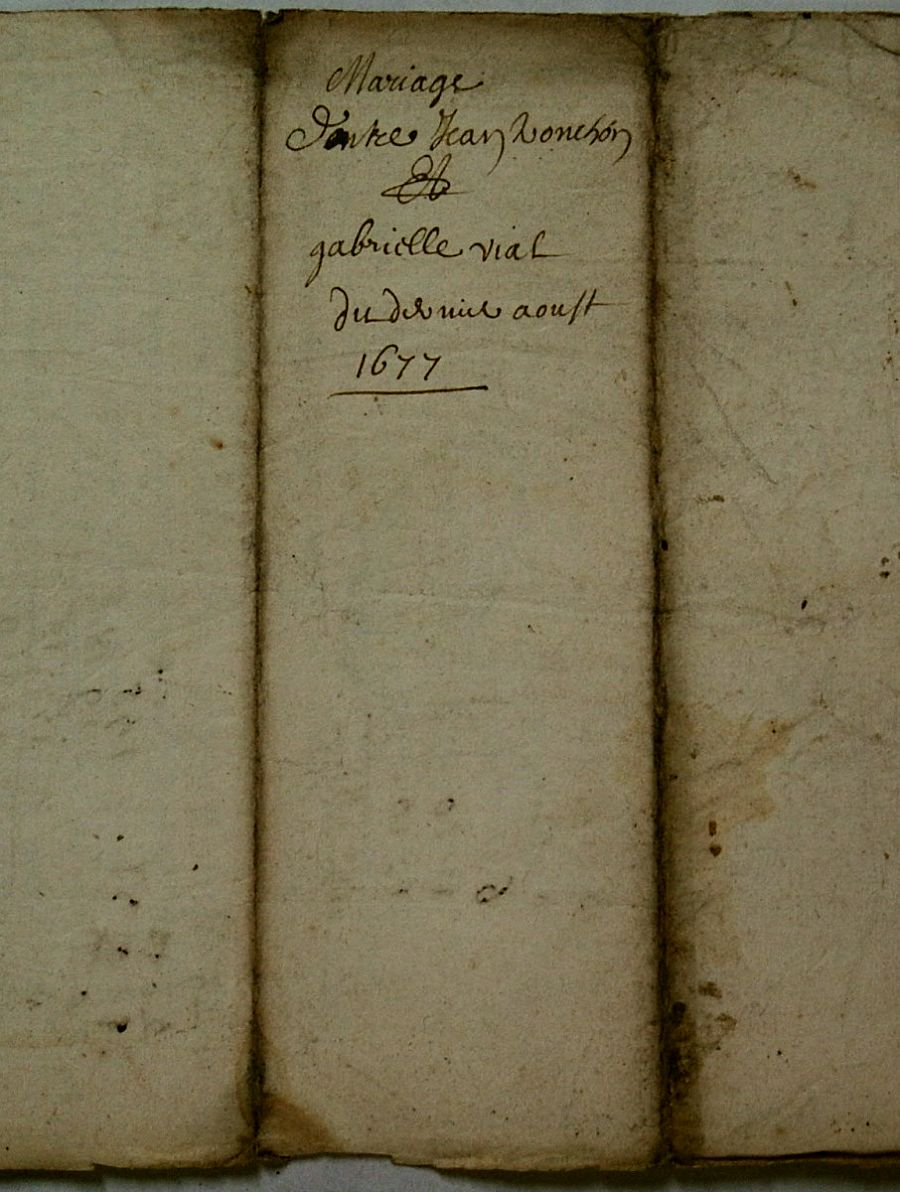 Mariage
D'entre Jean Ronchon
Et
gabrielle vial
du dernie aoust
1677